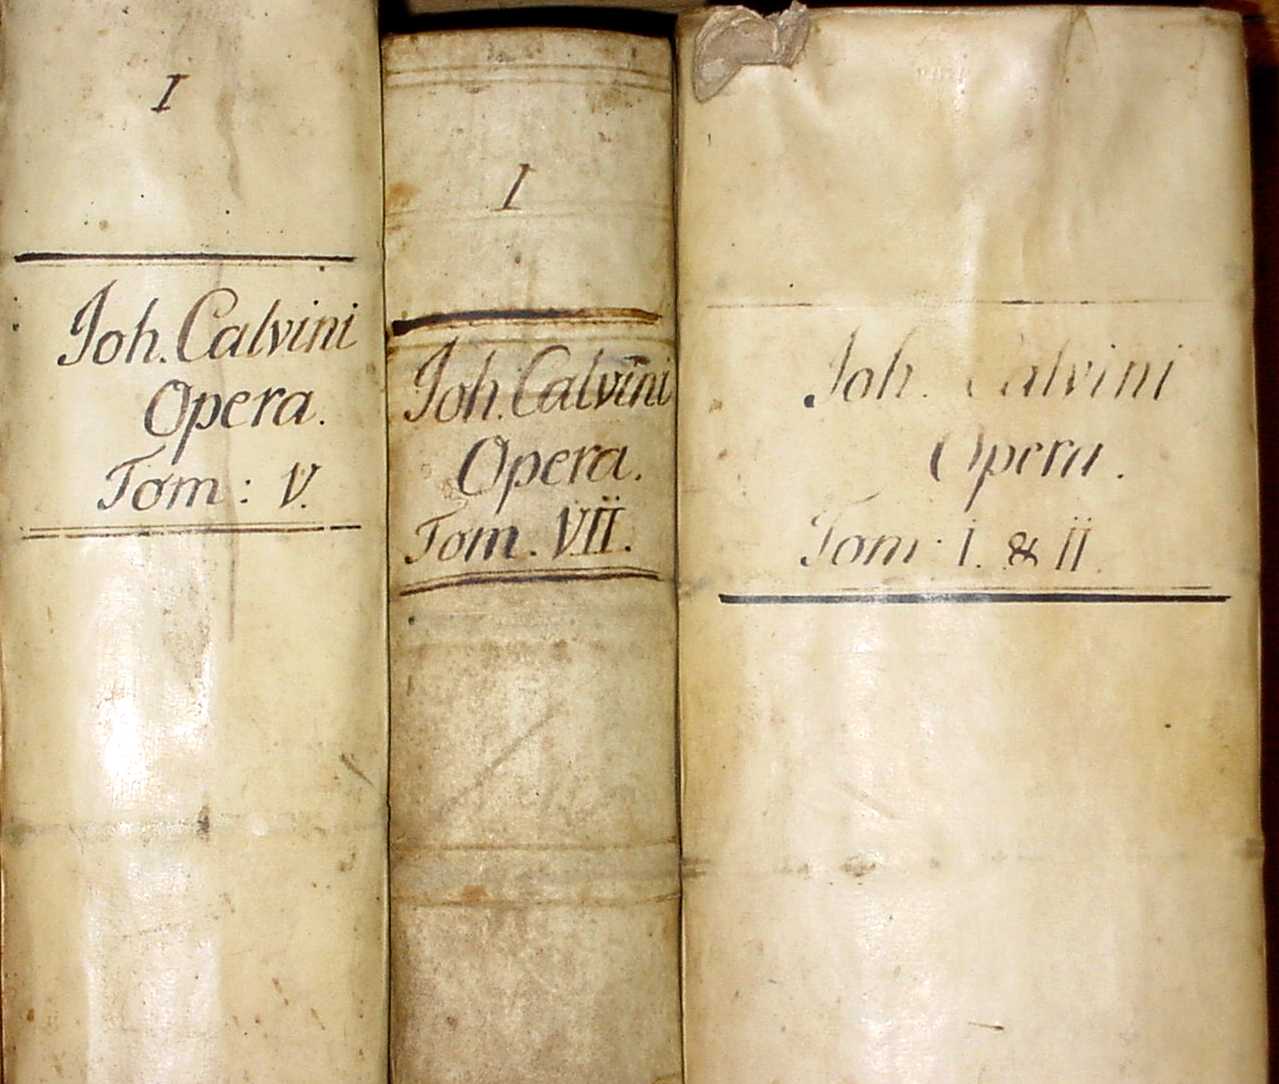 I
Joh. Calvini
Opera.
Tom: V.
I
Joh. Calvini
Opera.
Tom. VII.
Joh. Calvini
Opera.
Tom: I. & II.